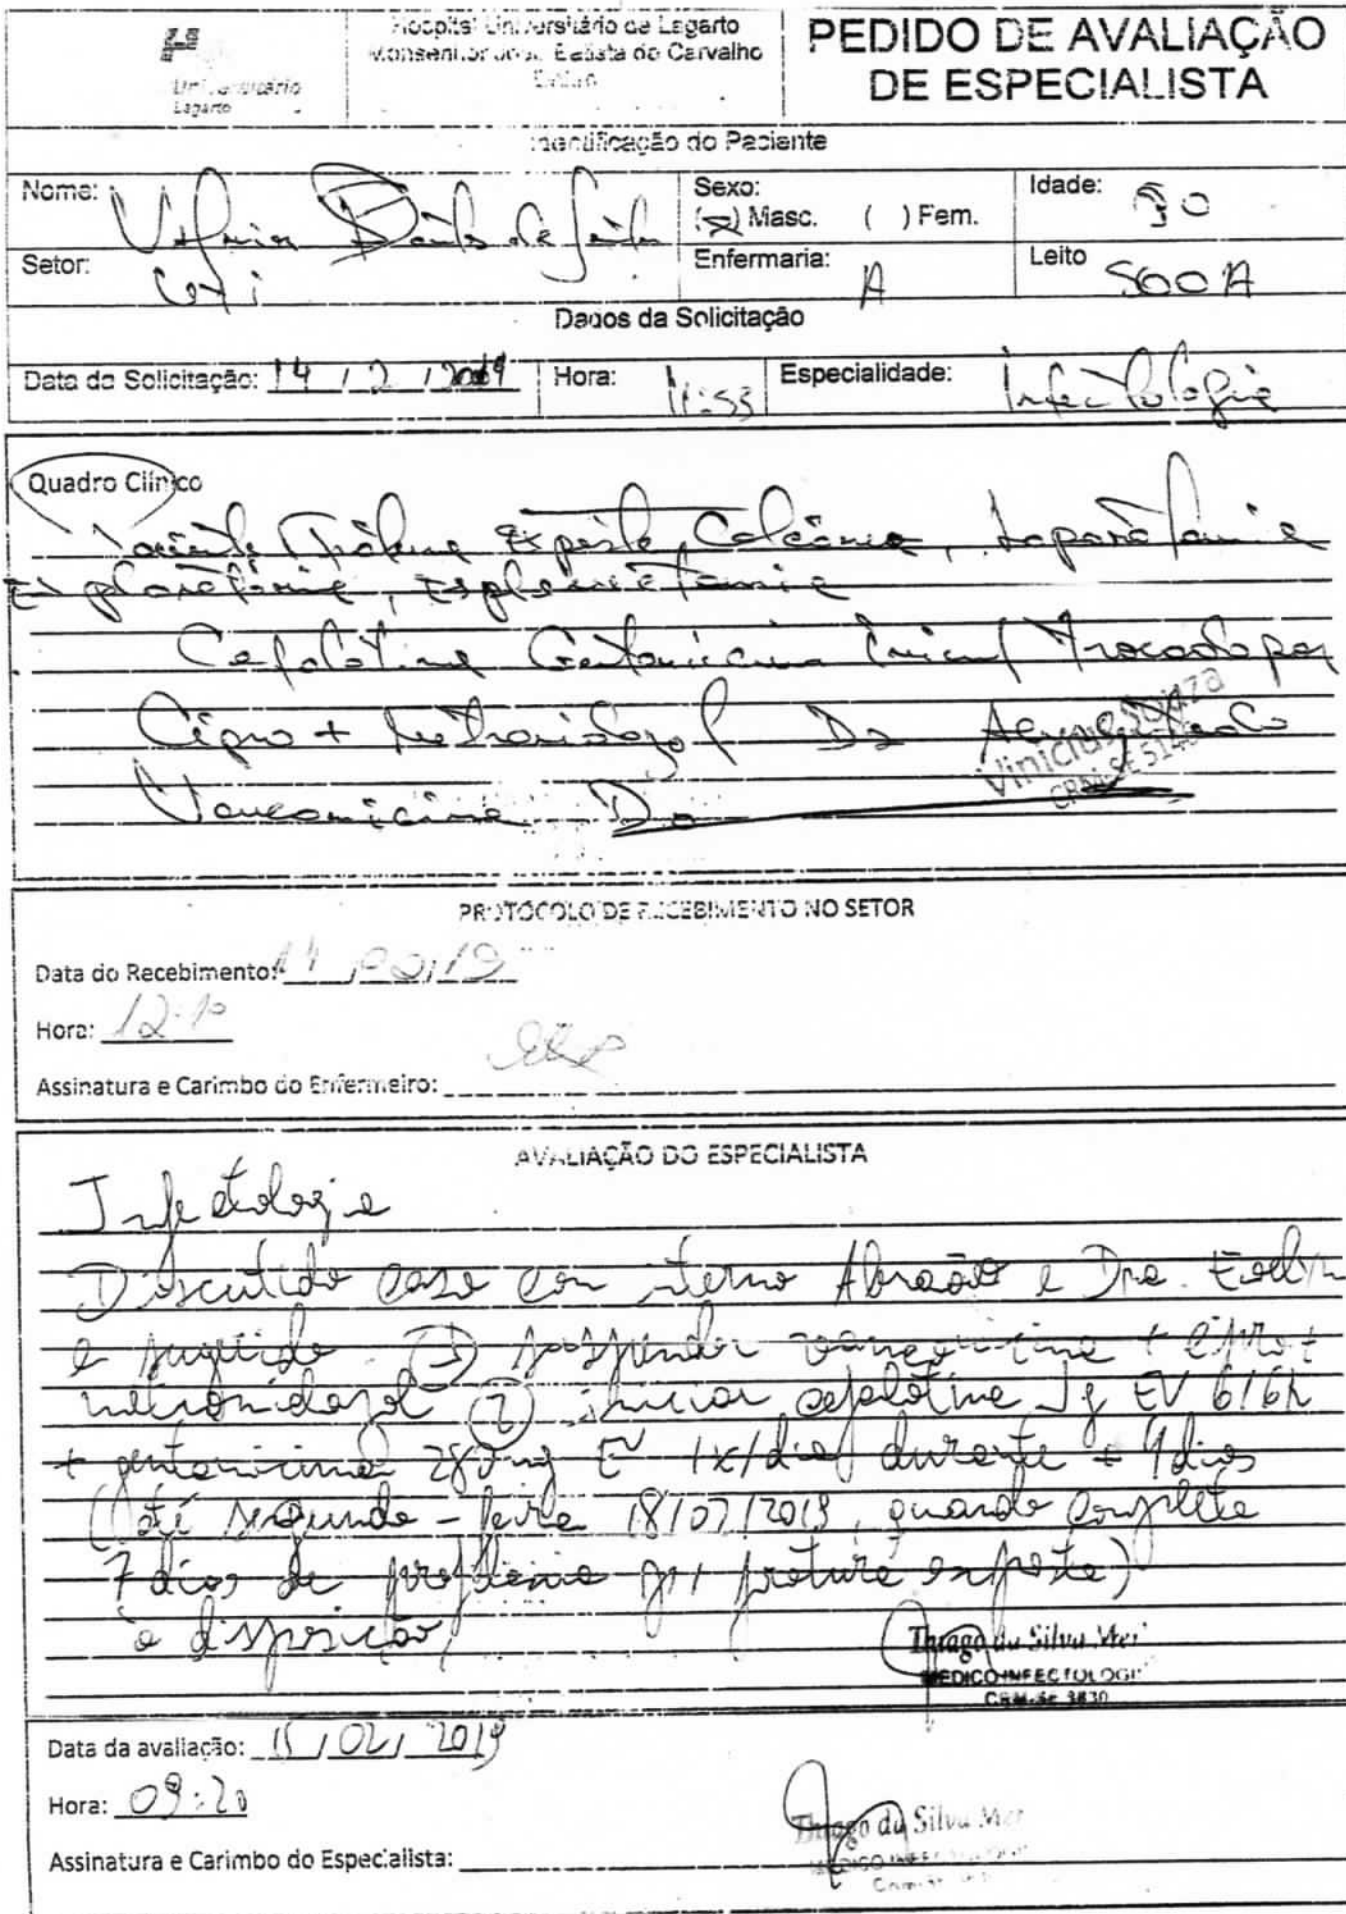 Universitário
Lagarto
Hospital Universitário de Lagarto
Monsenhor João Batista de Carvalho
PEDIDO DE AVALIAÇÃO
DE ESPECIALISTA
Identificação do Paciente
Nome:
Sexo:
(x) Masc. ( ) Fem.
Idade: 30
Setor:
Enfermaria: A
Leito 500A
Dados da Solicitação
Data da Solicitação: 14 / 2 / 2019
Hora: 11:53
Especialidade: Infectologia
Quadro Clínico
Paciente Fratura Exposta Calcâneo, Laparotomia
Exploratória, Esplenectomia
Cefalotina Gentamicina Inicial Trocado por
Cipro + Metronidazol
Vancomicina
Vinicius Souza
CRM-SE
PROTOCOLO DE RECEBIMENTO NO SETOR
Data do Recebimento: 14 / 02 / 19
Hora:
Assinatura e Carimbo do Enfermeiro:
AVALIAÇÃO DO ESPECIALISTA
Infectologia
Discutido caso com interno Abraão e Dra. Evelin
e sugerido ① suspender vancomicina + cipro +
metronidazol ② iniciar cefalotina 1g EV 6/6h
+ gentamicina 280mg EV 1x/dia durante + 4 dias
(até segunda-feira 18/02/2019, quando completa
7 dias de profilaxia p/ fratura exposta)
à disposição
Thiago da Silva
MÉDICO INFECTOLOGI
CRM-SE 3830
Data da avaliação: 15 / 02 / 2019
Hora: 09:20
Thiago da Silva
Assinatura e Carimbo do Especialista: